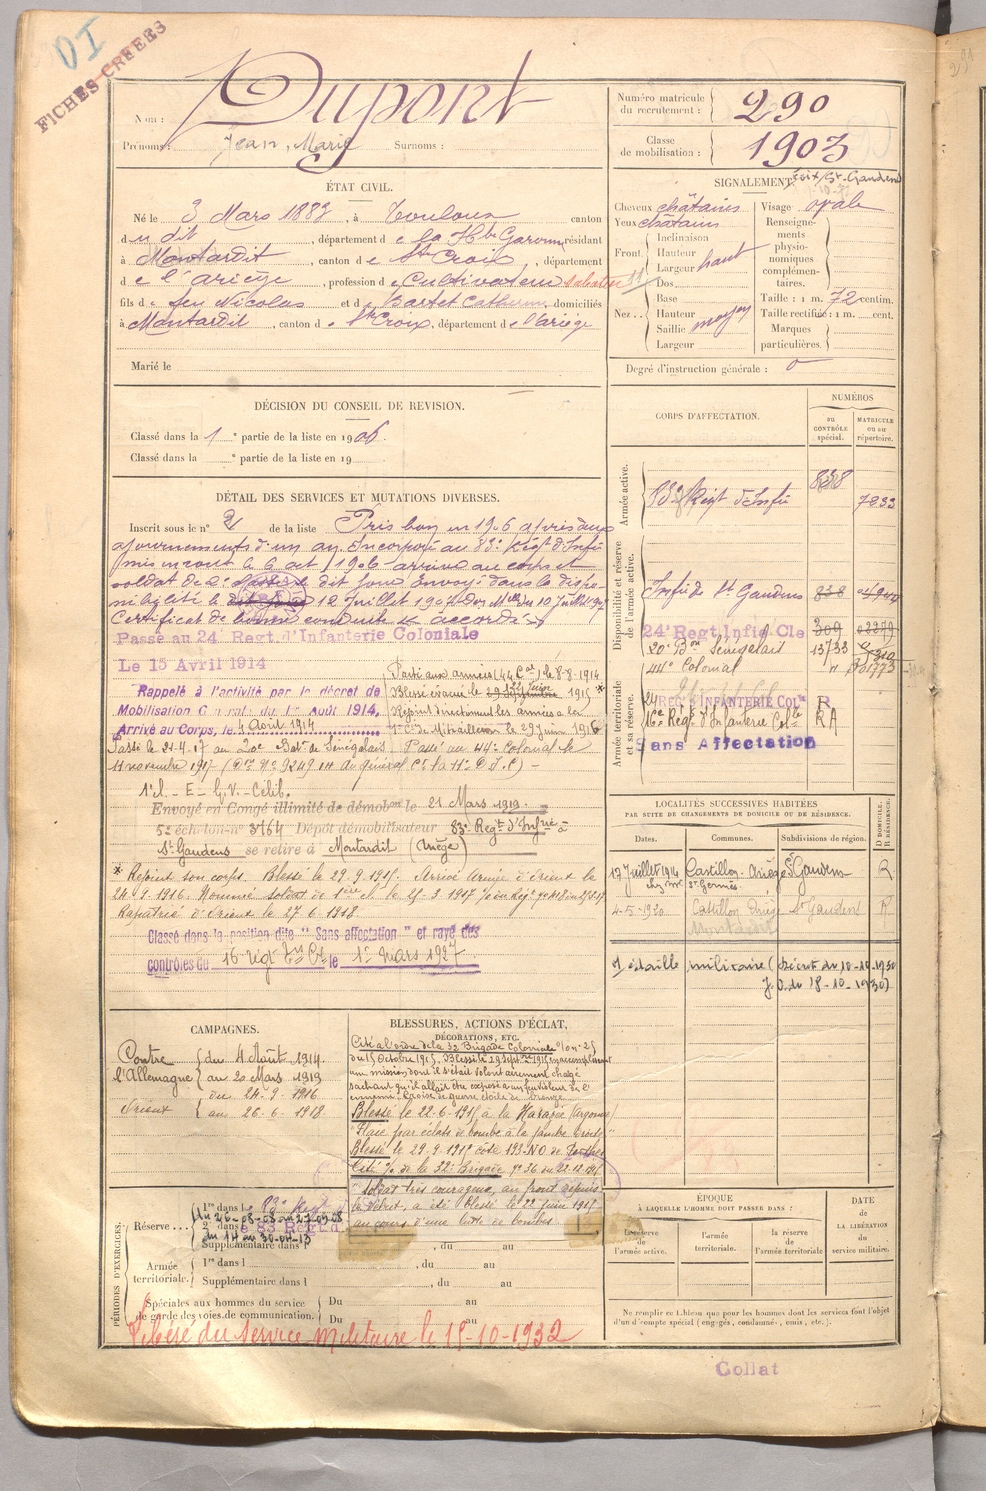 DI
FICHES CRÉÉES
Nom : Dupont
Prénoms : Jean, Marie Surnoms :
Numéro matricule du recrutement : 290
Classe de mobilisation : 1903
ÉTAT CIVIL.
Né le 3 Mars 1883, à Toulouse canton
du dit, département de la Hte Garonne, résidant
à Montardit, canton de Ste Croix, département
de l'Ariège, profession de Cultivateur
fils de feu Nicolas et de Bartet Catherine domiciliés
à Montardit, canton de Ste Croix, département de l'Ariège
Marié le
SIGNALEMENT.
Foix/St-Gaudens
Cheveux châtains Visage ovale
Yeux châtains
Front. Inclinaison
Hauteur
Largeur haut
Nez. Dos
Base
Hauteur
Saillie moyen
Largeur
Renseignements physionomiques complémentaires.
Taille : 1 m. 72 centim.
Taille rectifiée : 1 m. cent.
Marques particulières.
Degré d'instruction générale : 0
DÉCISION DU CONSEIL DE REVISION.
Classé dans la 1 e partie de la liste en 1906.
Classé dans la e partie de la liste en 19
DÉTAIL DES SERVICES ET MUTATIONS DIVERSES.
Inscrit sous le n° 2 de la liste Pris bon en 1906 après deux
ajournements d'un an. Incorporé au 83e Régt d'Infie
mis en route le 6 oct 1906 arrivé au corps et
soldat de 2e classe le dit jour. Envoyé dans la dispo-
nibilité le 12 Juillet 1907
Certificat de bonne conduite accordé
Passé au 24e Regt. d'Infanterie Coloniale
Le 15 Avril 1914
Rappelé à l'activité par le décret de
Mobilisation Générale du 1er Août 1914,
Arrivé au Corps, le 4 Août 1914
Parti aux armées (44 Cal) le 8-8-1914
Blessé évacué le 1915 *
Rejoint directement les armées
Cie de Mitrailleuses le 29 Juin 1916
Passé le 21-4-17 au 20e Bat. de Sénégalais. Passé au 44e Colonial le
11 novembre 1917 (On N° 9249 du Général Ct la 11e D.I.C) -
1 cl - E - G.V. - Célib.
Envoyé en Congé illimité de démobon le 21 Mars 1919.
5e échelon n° 3764 Dépôt démobilisateur 83e Régt d'Infie à
St Gaudens se retire à Montardit (Ariège)
* Rejoint son corps. Blessé le 29.9.1915. Arrivé Armée d'Orient le
24.9.1916. Nommé soldat de 1ère cl le 25-3-1917
Rapatrié d'Orient le 27-6-1918.
Classé dans la position dite "Sans affectation" et rayé des
contrôles du 16 régt le 1er mars 1927
CORPS D'AFFECTATION.
NUMÉROS
au CONTRÔLE spécial.
MATRICULE ou au répertoire.
Armée active.
83e Régt d'Infie 838 7233
Disponibilité et réserve de l'armée active.
Infie de St Gaudens 838
24e Regt. Infie Cle 309 02279
20e Bon Sénégalais 13733
44e Colonial " 01773
Armée territoriale et sa réserve.
INFANTERIE COLle R
16e Régt d'Infanterie Colle RA
Sans Affectation
LOCALITÉS SUCCESSIVES HABITÉES
PAR SUITE DE CHANGEMENTS DE DOMICILE OU DE RÉSIDENCE.
Dates. Communes. Subdivisions de région. D DOMICILE. R RÉSIDENCE.
Juillet 1914 Castillon Ariège St Gaudens R
4-5-1920 Castillon Ariège St Gaudens R
Montardit
Médaille militaire (Décret du 10-10-1930
J.O. du 18-10-1930)
CAMPAGNES.
Contre l'Allemagne du 4 Août 1914
au 20 Mars 1919
Orient du 24-9-1916
au 26-6-1918
BLESSURES, ACTIONS D'ÉCLAT,
DÉCORATIONS, ETC.
Cité à l'ordre de la 32 Brigade Coloniale
du 15 Octobre 1915. Blessé le 29 Septbre 1915 en accomplissant
une mission dont il s'était volontairement chargé
sachant qu'il allait être exposé à un feu violent de l'
ennemi. Croix de guerre étoile de bronze.
Blessé le 22-6-1915 à la Harazée (Argonne)
"Plaie par éclats de bombe à la jambe droite"
Blessé le 29.9.1915 côte 193 N.O. de
Cité O. de la 32e Brigade N° 36 du 22-12-1915
"Soldat très courageux, au front depuis
le début, a été blessé le 22 juin 1915
au cours d'une lutte de bombes
PÉRIODES D'EXERCICES.
Réserve 1re dans le 83e Régt
du 26-08-08 au 27-09-08
2e dans le 83 Regt d
du 14 au 30-04-13
Supplémentaire dans l
Armée territoriale. 1re dans l , du au
Supplémentaire dans l , du au
Spéciales aux hommes du service de garde des voies de communication. Du au
Du au
Libéré du service militaire le 15-10-1932
ÉPOQUE
À LAQUELLE L'HOMME DOIT PASSER DANS :
la réserve de l'armée active.
l'armée territoriale.
la réserve de l'armée territoriale
DATE DE LA LIBÉRATION du service militaire.
Ne remplir ce tableau que pour les hommes dont les services font l'objet
d'un décompte spécial (engagés, condamnés, omis, etc.).
Collat